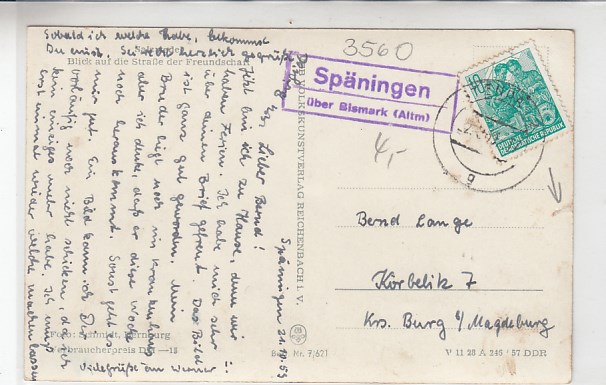 Sobald ich welche habe, bekommst
Du einst. Sei recht herzlich gegrüßt
Blick auf die Straße der Freundschaft
3560
Späningen
über Bismark (Altm)
4,-
DEUTSCHE
DEMOKRATISCHE REPUBLIK
VOLKSKUNSTVERLAG REICHENBACH i. V.
Späningen 21.10.59
Lieber Bernd!
Jetzt bin ich zu Hause, denn wir
haben Ferien. Ich habe mich sehr
über deinen Brief gefreut. Das Bild
ist ganz gut geworden. Mein
Bruder liegt noch im Krankenhaus
aber ich denke, daß er diese Woche
noch herauskommt. Sonst geht es
mir gut. Ein Bild kann ich Dir
vorläufig noch nicht schicken, da ich
kein einziges mehr habe. Ich muß
erst mal wieder welche machen lassen
Viele Grüße an
Bernd Lange
Körbelitz 7
Krs. Burg b/Magdeburg
Foto: Schmidt, Bernburg
Verbraucherpreis DM —18
Best. Nr. 7/621
V 11 28 A 245 57 DDR